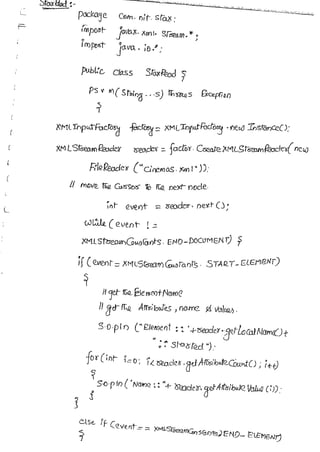 StaxRead :-
package com.nit.stax;
import javax.xml.stream.*;
import java.io.*;
public class StaxRead {
PS V m(String...s) throws Exception
{
XMLInputFactory factory = XMLInputFactory.newInstance();
XMLStreamReader reader = factor.CreateXMLStreamReader(new
FileReader ("Cinemas.xml"));
// move the Cursor to the next node.
int event = reader.next();
while (event !=
XMLStreamConstants.END-DOCUMENT) {
if (event = XMLStreamConstants.START-ELEMENT)
{
// get the ElementName
// get the Attributes, name & values.
S.o.pln ("Element :: "+reader.getLocalName()+
":: started");
for(int i=0; i<reader.getAttributeCount(); i++)
{
Sopln ("Name ::"+ reader.getAttributeValue(i));
}
}
else if (event == XMLStreamConstants)END-ELEMENT)
{